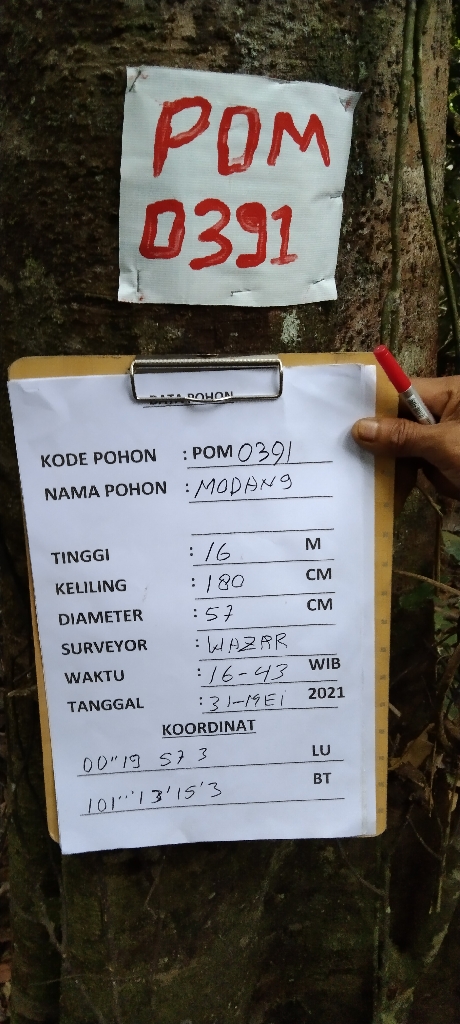 POM
0391
DATA POHON
KODE POHON : POM 0391
NAMA POHON : MODANG
TINGGI : 16 M
KELILING : 180 CM
DIAMETER : 57 CM
SURVEYOR : WAZAR
WAKTU : 16-43 WIB
TANGGAL : 31-MEI 2021
KOORDINAT
00"19 57 3 LU
101"'13'15'3 BT